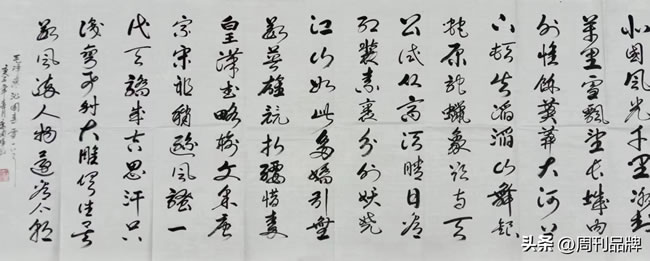 北国风光千里冰封
萬里雪飘望长城内
外惟馀莽莽大河上
下顿失滔滔山舞银
蛇原驰蠟象欲与天
公试比高须晴日看
红装素裹分外妖娆
江山如此多娇引無
数英雄竞折腰惜秦
皇漢武略输文采唐
宗宋祖稍逊风骚一
代天骄成吉思汗只
识弯弓射大雕俱往矣
数风流人物还看今朝
头条 @周刊品牌